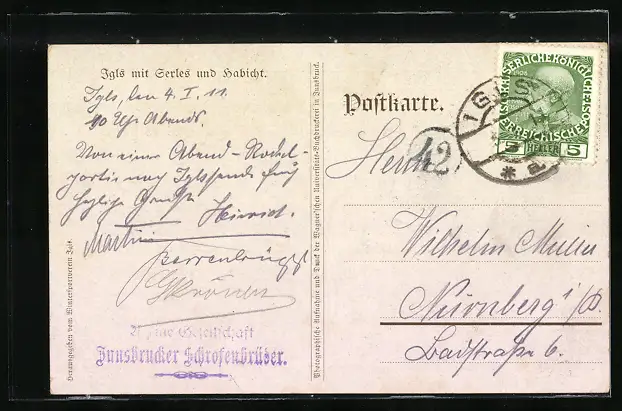 Igls mit Serles und Habicht.
Igls, den 4. I. 11.
10 Uhr Abends.
Von einer Abend-Rodel-
partie nach Igls sende
herzliche Grüße Heinrich.
Martini
Gesellschaft
Innsbrucker Schrofenbrüder.
Herausgegeben vom Wintersportverein Igls.
Photographische Aufnahme und Druck der Wagner'schen Universitäts-Buchdruckerei in Innsbruck.
Postkarte.
42
IGLS
* a
KAISERLICHE KÖNIGLICHE
ÖSTERREICHISCHE POST
5 HELLER 5
Herrn
Wilhelm Müller
Nürnberg i/B.
Badstraße 6.